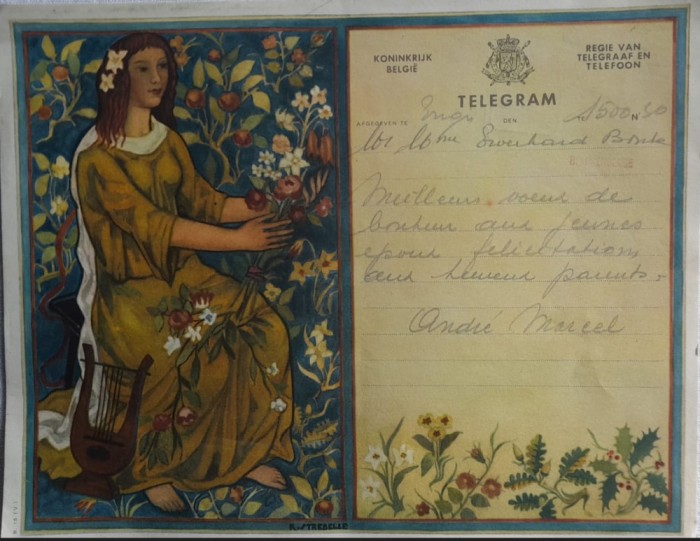 KONINKRIJK
BELGIË
REGIE VAN
TELEGRAAF EN
TELEFOON
TELEGRAM
AFGEGEVEN TE
DEN
Mr Mme
Meilleurs voeux de
bonheur aux jeunes
époux félicitations
aux heureux parents =
André Marcel
R. STREBELLE